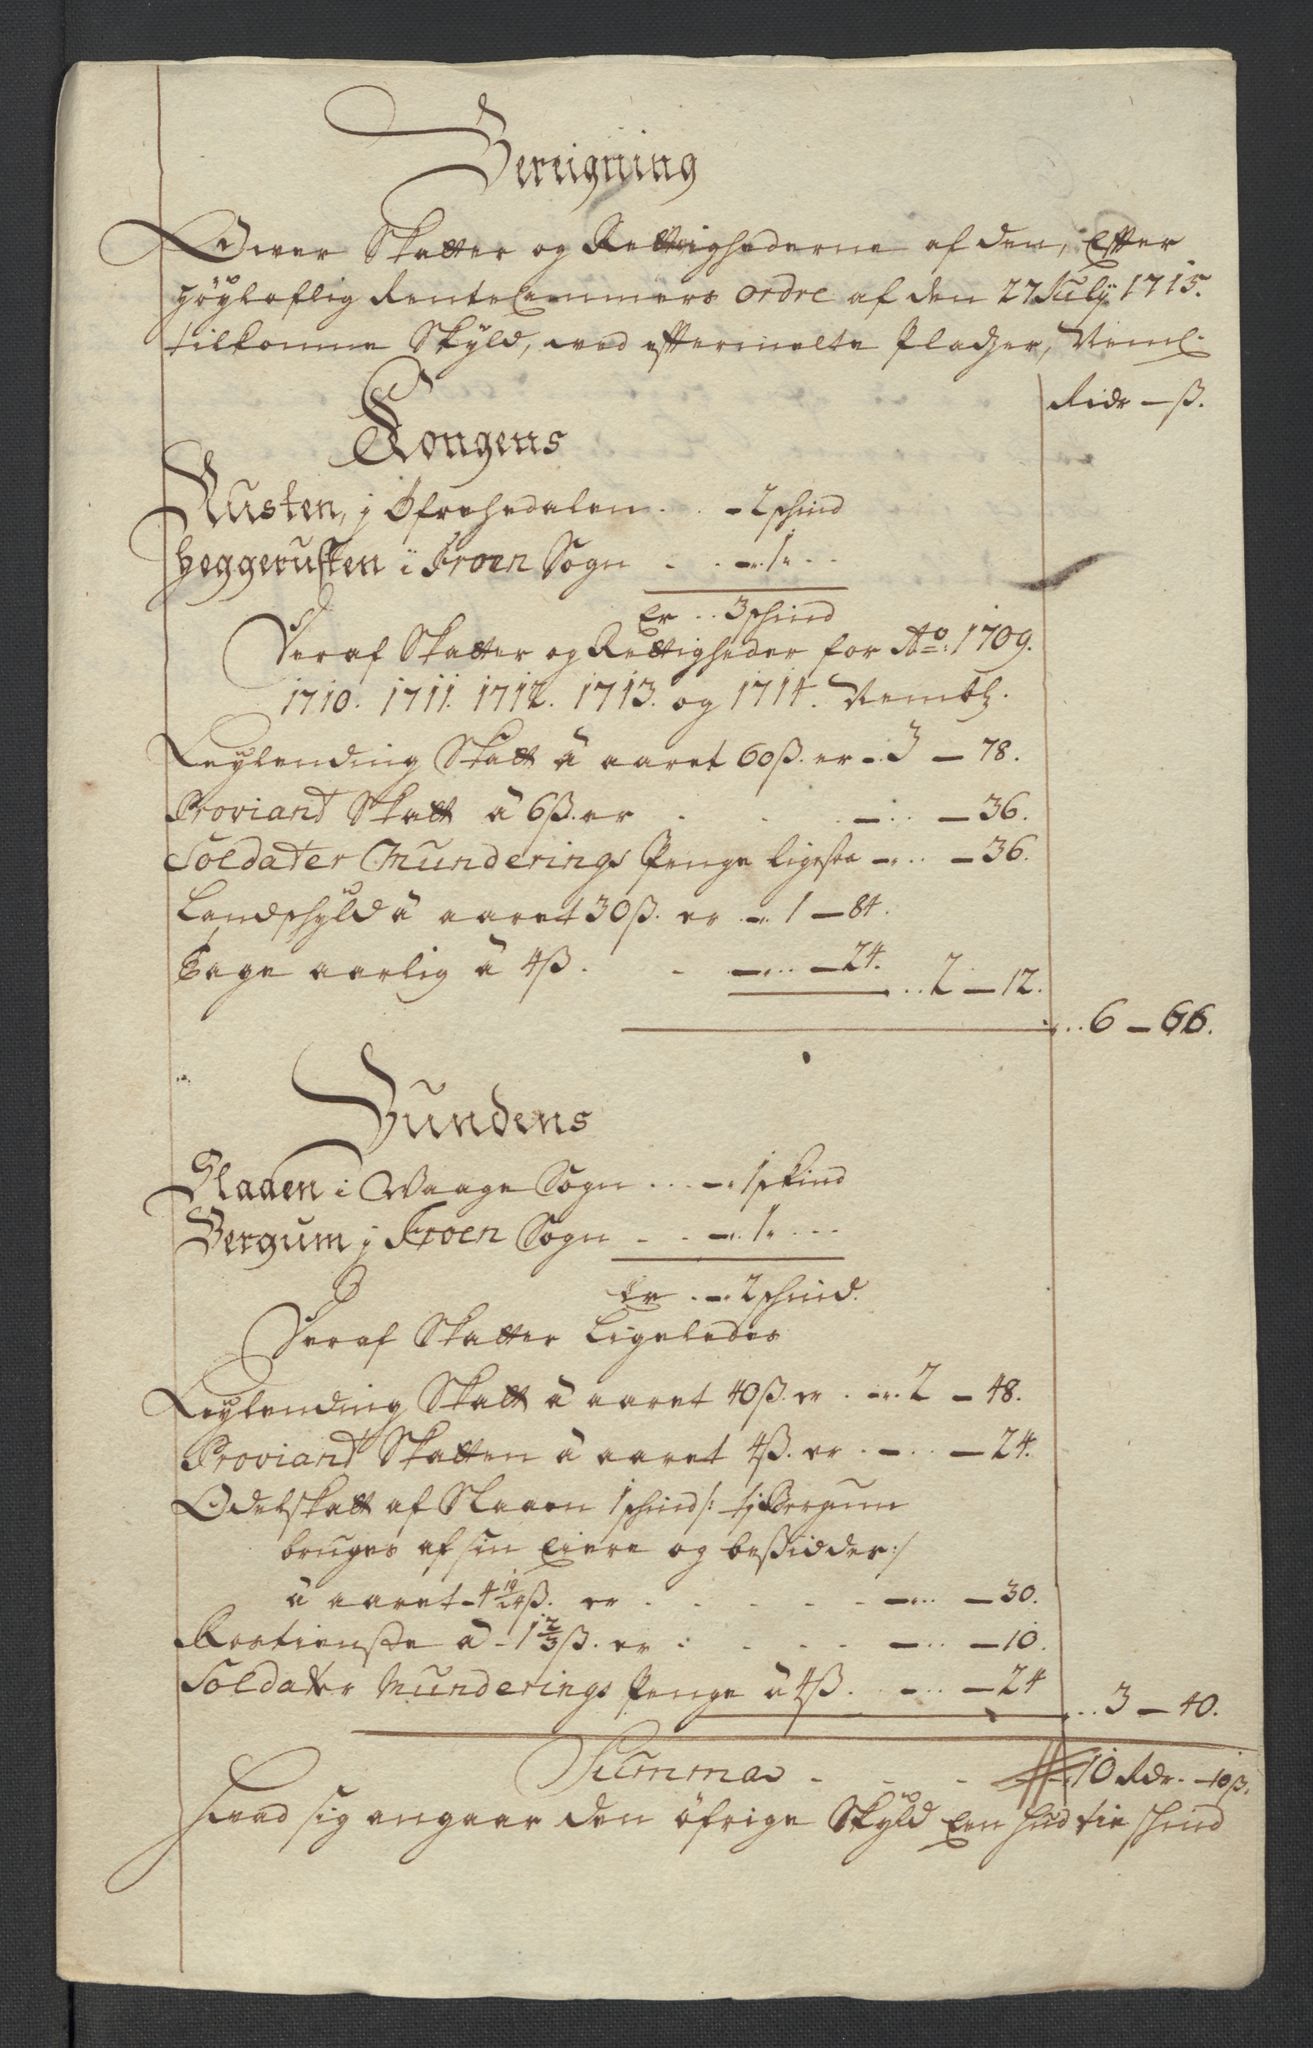 Bereigning
Over Skatter og Rettighederne af den, Efter
höyloflig Rente Cammers ordre af den 27 July 1715.
tilkomne Skyld, ved eftermelte Pladzer, Neml.
Ridr — ß.
Kongens
Rusten, j Lessehedalen . . — 2 schind
Heggerusten i Froen Sogn . . — 1 " . .
Er . . 3 schind
Deraf Skatter og Rettigheder for Ao: 1709.
1710. 1711. 1712. 1713. og 1714. Nembl.
Leylending Skatt â aaret 60 ß. er . 3 — 78.
Proviant Skatt â 6 ß. er . . . — . . — 36.
Soldater Munderings Penge ligesaa — . . — 36.
Landschyld â aaret 30 ß. er . . 1 — 84.
Tage aarlig â 4 ß. . . — . . — 24. . . 2 — 12.
. . 6 — 66.
Bundens
Slaaen i Waage Sogn . . — . 1 skind
Bergum j Froen Sogn . . — . 1 " . .
Er . — . 2 schind.
Deraf Skatter Ligeledes
Leylending Skatt â aaret 40 ß. er . — . 2 — 48.
Proviant Skatten â aaret 4 ß. er . — . . — 24.
Odelskatt af Slaaen 1 schind /: thj Bergum
bruges af sin Eiere og besidder :/
â aaret — 4 19/24 ß. er . . . . . — . . — 30.
Rostienste â — 1 2/3 ß. er . . . — . . — 10.
Soldater Munderings Penge â 4 ß. . — . . — 24
. . 3 — 40.
Summa . . . 10 Rdr. — 10 ß.
Hvad sig angaar den öfrige Skyld Een hud tie schind